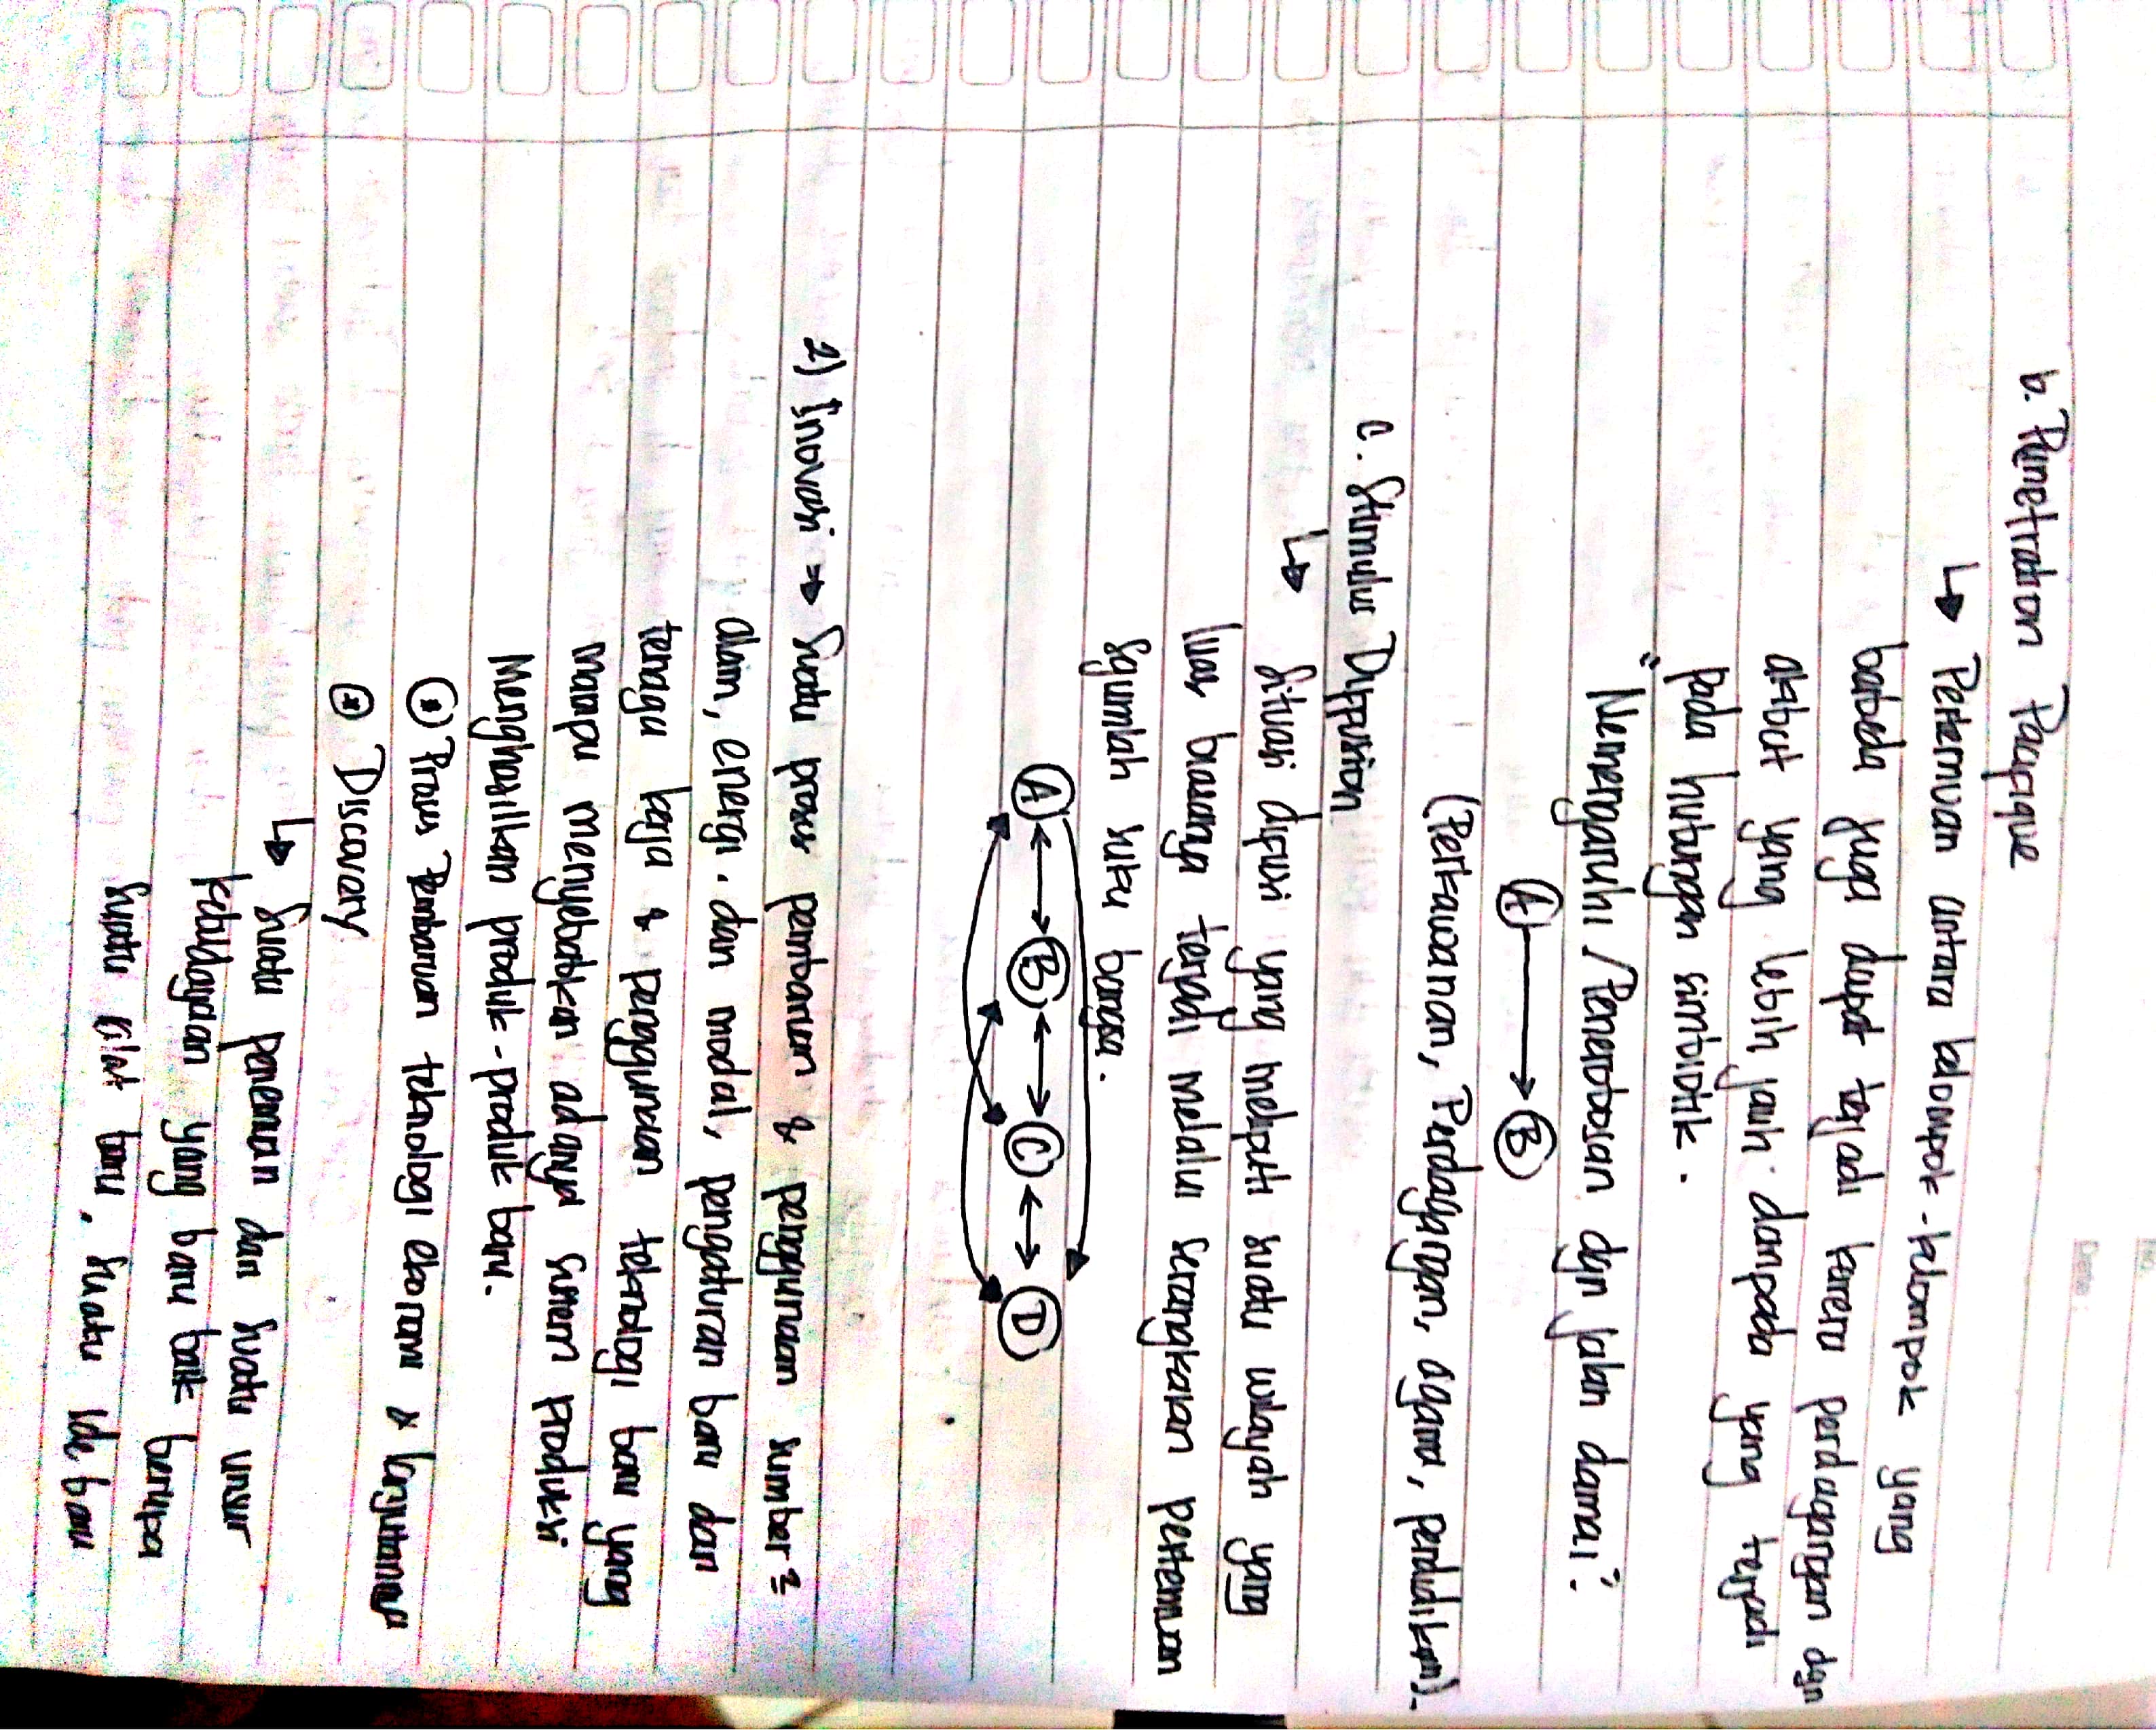 b. Penetration Pacifique
↳ Pertemuan antara kelompok-kelompok yang
berbeda juga dapat terjadi karena perdagangan dgn
akibat yang lebih jauh daripada yang terjadi
pada hubungan simbiotik.
"Memengarui / Penerobosan dgn jalan damai".
(A) → (B)
(Perkawanan, Perdagangan, agama, pendidikan).
c. Stimulus Diffusion
↳ Situasi difusi yang meliputi suatu wilayah yang
luas biasanya terjadi melalui serangkaian pertemuan
sejumlah suku bangsa.
(A) ↔ (B) ↔ (C) ↔ (D)
2) Inovasi → Suatu proses pembaruan & penggunaan sumber²
alam, energi, dan modal, pengaturan baru dari
tenaga kerja & penggunaan teknologi baru yang
mampu menyebabkan adanya sistem produksi
Menghasilkan produk-produk baru.
Proses Pembaruan teknologi ekonomi &
Discovery
↳ Suatu penemuan dari suatu unsur
kebudayaan yang baru baik berupa
suatu alat baru, suatu ide baru
Date:
No.